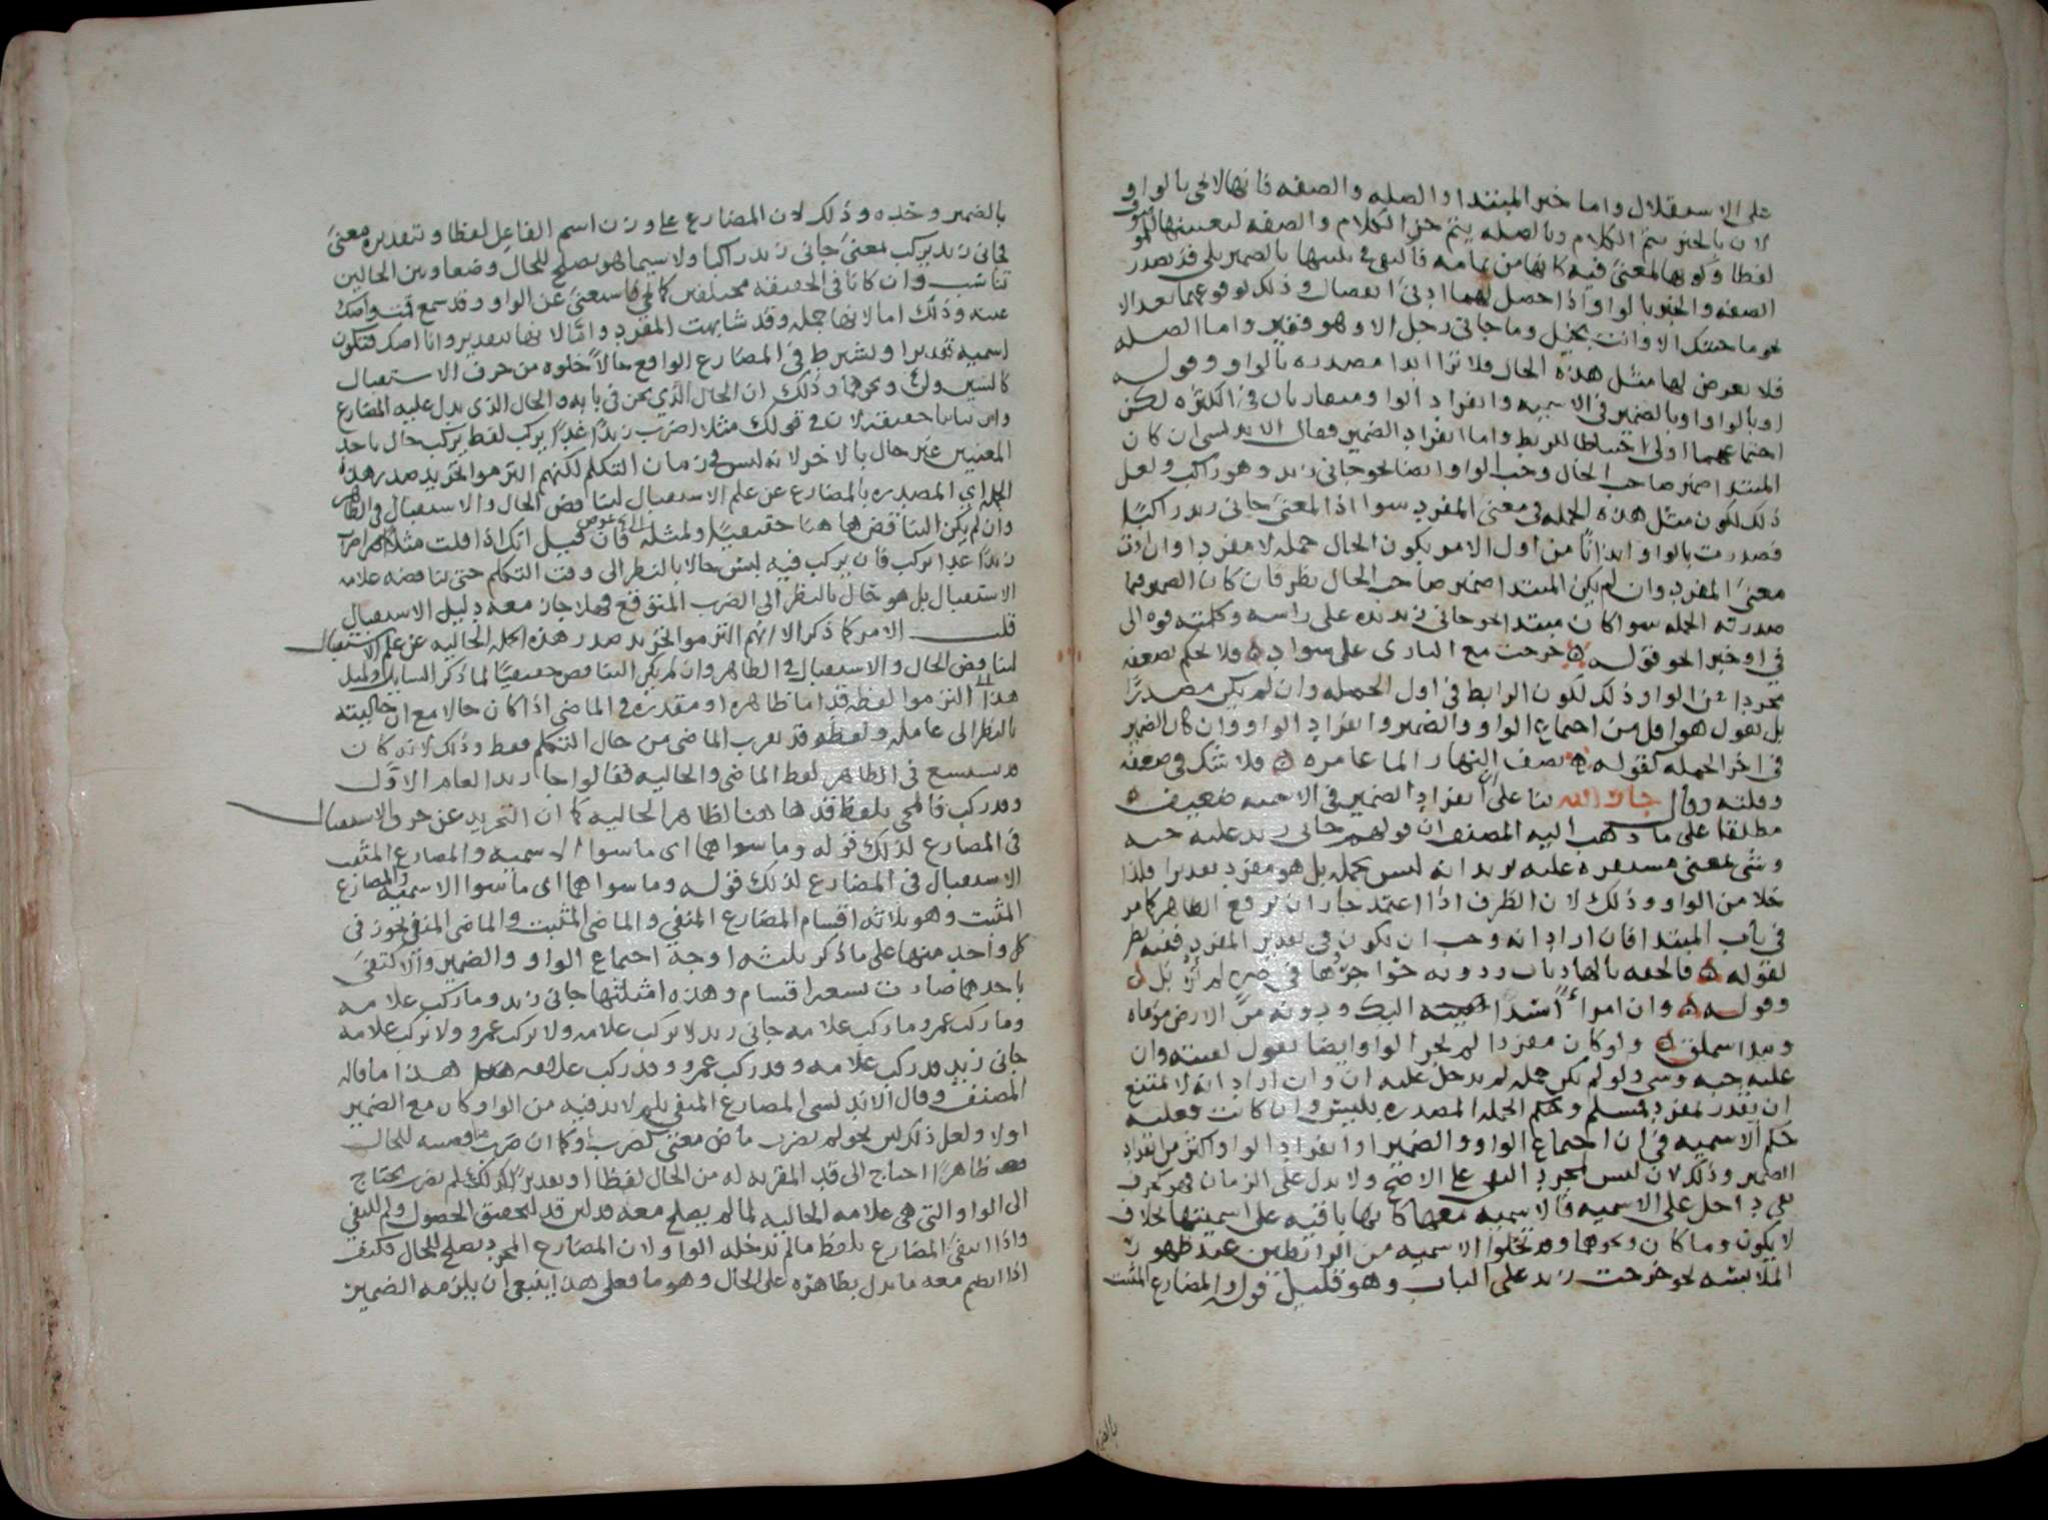 على الاستقلال واما خبر المبتدا والصله والصفه فانها لا تجى بالواو
لان بالخبر يتم الكلام وبالصله يتم جزء الكلام والصفه لتبعيتها للموصوف
لفظا وكونها لمعنىً فيه كانها من تمامه فاكتفى فى بالضمير بلى قد تصدر
الصفه والخبر بالواو اذا حصل لهما ادنىٰ انفصال وذلك لوقوعهما بعد الا
نحو ما حسبتك الا وانت بخيل وما جانى رجل الا وهو فقير واما الصله
فلا يعرض لها مثل هذه الحال فلا ترا ابدا مصدره بالواو وقوله
او بالواو او بالضمير فى الاسميه وانفراد الواو متقاربان فى الكثره لكن
اجتماعهما اولى احتياطا للربط واما انفراد الضمير فقال الاندلسى ان كان
المبتدا ضمير صاحب الحال وجب الواو ايضا نحو جانى زيد وهو راكب ولعل
ذلك لكون مثل هذه الجمله فى معنى المفرد سوا اذ المعنىٰ جانى زيد راكبًا
فصدرت بالواو ايذانًا من اول الامر بكون الحال جمله لا مفردا وان ادت
معنىٰ المفرد وان لم يكن المبتدا ضمير صاحب الحال نظر فان كان الضمير فيما
صدرت به الجمله سوا كان مبتدا نحو جانى زيد يده على راسه وكلمته فوه الى
فى او خبرا نحو قوله ۞ خرجت مع البازى على سواد ۞ فلا نحكم بضعفه
مجردا عن الواو وذلك لكون الرابط فى اول الجمله وان لم يكن مصدرًا
بل نقول هو اقل من اجتماع الواو والضمير وانفراد الواو وان كان الضمير
فى اخر الجمله كقوله ۞ نصف النهار الما غامره ۞ فلا شك فى ضعفه
وقلته وقال جار الله بنا على ان انفراد الضمير فى الاسميه ضعيف
مطلقا على ما ذهب اليه المصنف ان قولهم جانى زيد عليه جبه
وشى بمعنى مستقره عليه يريد انه ليس بجمله بل هو مفرد تقديرا فلذا
خلا من الواو وذلك لان الظرف اذا اعتمد جاز ان يرفع الظاهر كما مر
فى باب المبتدا فان اراد انه وجب ان يكون فى تقدير المفرد ففيه نظر
لقوله ۞ فالحقه بالهاديات ودونه جواحرها فى صره لم تزيل ۞
وقوله ۞ وان امرأً اسرا اليك ودونه من الارض موماه
وبيدا سملق ۞ ولو كان مفردا لم يجز الواو وايضا نقول لقيته وان
عليه جبه وشى ولو لم يكن جمله لم يدخل عليه ان وان اراد انه لا يمتنع
ان يقدر بمفرد فمسلم وحكم الجمله المصدره بليس وان كانت فعليه
حكم الاسميه فى ان اجتماع الواو والضمير او انفراد الواو اكثر من انفراد
الضمير وذلك لان ليس لمجرد النفى على الاصح ولا يدل على الزمان فهو كحرف
نفى داخل على الاسميه فالاسميه معها كانها باقيه على اسميتها بخلاف
لا يكون وما كان ونحوهما وقد تخلوا الاسميه من الرابطين عند ظهور
الملابسه نحو خرجت زيد على الباب وهو قليل قوله والمضارع المثبت
بالضمير
بالضمير وحده وذلك لان المضارع على وزن اسم الفاعل لفظا وتقديره معنىً
فجانى زيد يركب بمعنىٰ جانى زيد راكبا ولا سيما هو يصلح للحال وضعا وبين الحالين
تناسب وان كانا فى الحقيقه مختلفين كما يجى فاستغنىٰ عن الواو وقد سمع قمت واصك
عينه وذلك اما لانها جمله وقد شابهت المفرد واما لانها بتقدير وانا اصك فتكون
اسميه تقديرا ويشترط فى المضارع الواقع حالاً خلوه من حرف الاستقبال
كالسين ولن ونحوهما وذلك ان الحال الذى نحن فى بابه والحال الذى يدل عليه المضارع
وان تباينا حقيقه لان فى قولك مثلا اضرب زيدًا غدًا يركب لفظ يركب حال باحد
المعنيين غير حال بالاخر لانه ليس فى زمان التكلم لكنهم التزموا تجريد صدر هذه
الجمله اى المصدره بالمضارع عن علم الاستقبال لتناقض الحال والاستقبال فى الظاهر
وان لم يكن التناقض هاهنا حقيقيًا ولمثله فان قيل انك اذا قلت مثلا اضرب
زيدًا غدا يركب فان يركب فيه ليس حالا بالنظر الى وقت التكلم حتى تناقضه علامه
الاستقبال بل هو حال بالنظر الى الضرب المتوقع فهلا جاز معه دليل الاستقبال
قلت الامر كما ذكر الا انهم التزموا تجريد صدر هذه الجمله الحاليه عن علم الاستقبال
لتناقض الحال والاستقبال فى الظاهر وان لم يكن التناقض حقيقيًا لما ذكر السايل ولمثل
هذا التزموا لفظه قد اما ظاهره او مقدره فى الماضى اذا كان حالا مع ان حاليته
بالنظر الى عامله ولفظه قد تقرب الماضى من حال التكلم فقط وذلك لانه كان
يستبشع فى الظاهر لفظ الماضى والحاليه فقالوا جا زيد العام الاول
وقد ركب فالمجى بلفظ قد هاهنا لظاهر الحاليه كما ان التجريد عن حرف الاستقبال
فى المضارع لذلك قوله وما سواهما اى ما سوا الاسميه والمضارع المثبت
الاستقبال فى المضارع لذلك قوله وما سواهما اى ما سوا الاسميه والمضارع
المثبت وهو ثلاثه اقسام المضارع المنفى والماضى المثبت والماضى المنفى يجوز فى
كل واحد منها على ما ذكر ثلثه اوجه اجتماع الواو والضمير والاكتفى
باحدهما صارت تسعه اقسام وهذه امثلتها جانى زيد وما ركب غلامه
وما ركب عمرو ما ركب غلامه جانى زيد لا يركب غلامه ولا يركب عمرو ولا يركب غلامه
جانى زيد قد ركب غلامه وقد ركب عمرو وقد ركب غلامه هذا ما قاله
المصنف وقال الاندلسى المضارع المنفى بلم لا بد فيه من الواو كان مع الضمير
اولا ولعل ذلك لان نحو لم يضرب ماض معنى كضرب فكما ان ضرب لمناقضته للحال
ظاهرًا احتاج الى قد المقربه له من الحال لفظا او تقديرًا كذلك لم يضرب يحتاج
الى الواو التى هى علامه الحاليه لما لم يصلح معه قد لان قد لتحقيق الحصول ولم للنفى
واذا انتفىٰ المضارع بلفظ ما لم تدخله الواو لان المضارع المجرد يصلح للحال فكيف
اذا انضم معه ما يدل بظاهره على الحال وهو ما فعلى هذا ينبغى ان يلزمه الضمير